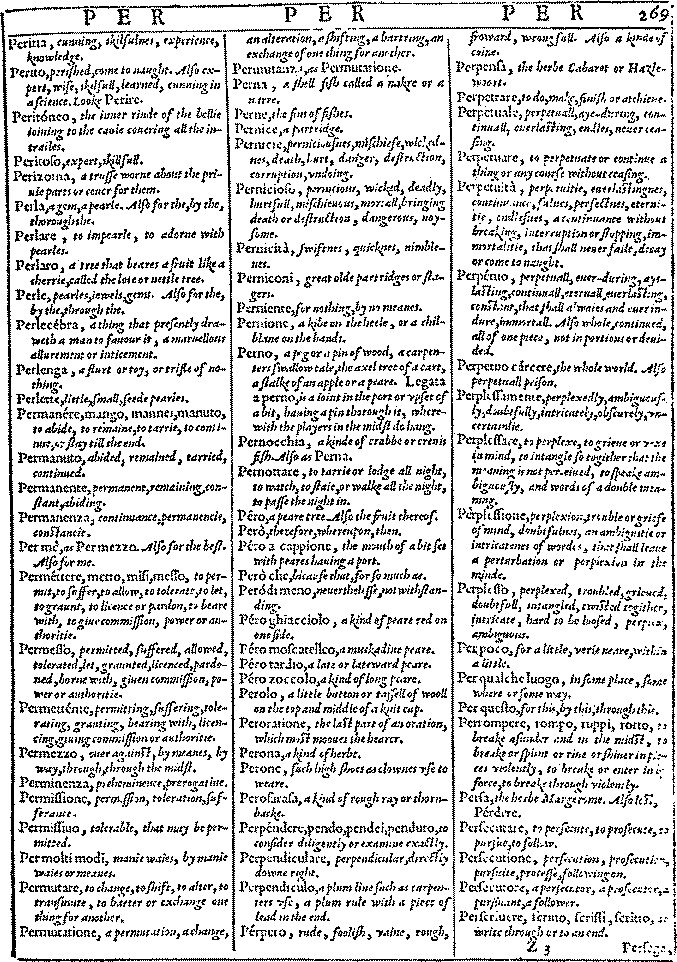 P E R P E R P E R 269
Peritia, cunning, skilfulnes, experience,
knowledge.
Perito, perished, come to naught. Also ex-
pert, wise, skilfull, learned, cunning in
a science. Looke Perire.
Peritóneo, the inner rinde of the bellie
ioining to the caule couering all the in-
trailes.
Peritoso, expert, skilfull.
Perizoma, a trusse worne about the pri-
uie parts or couer for them.
Perla, a gem, a pearle. Also for the, by the,
thorough the.
Perlare, to impearle, to adorne with
pearles.
Perlaro, a tree that beares a fruit like a
cherrie, called the lote or nettle tree.
Perle, pearles, iewels, gems. Also for the,
by the, through the.
Perlecébra, a thing that presently dra-
weth a man to fauour it, a maruellous
allurement or inticement.
Perlenga, a flurt or toy, or trifle of no-
thing.
Perlette, little, small, seede pearles.
Permanére, mango, mannei, manuto,
to abide, to remaine, to tarrie, to conti-
nue, or stay till the end.
Permanuto, abided, remained, tarried,
continued.
Permanente, permanent, remaining, con-
stant, abiding.
Permanenza, continuance, permanencie,
constancie.
Per mé, as Per mezzo. Also for the best.
Also for me.
Perméttere, metto, misi, messo, to per-
mit, to suffer, to allow, to tolerate, to let,
to graunt, to licence or pardon, to beare
with, to giue commission, power or au-
thoritie.
Permesso, permitted, suffered, allowed,
tolerated, let, graunted, licenced, pardo-
ned, borne with, giuen commission, po-
wer or authoritie.
Permetténte, permitting, suffering, tole-
rating, granting, bearing with, licen-
cing, giuing commission or authoritie.
Permezzo, ouer against, by meanes, by
way, through, through the midst.
Perminenza, preheminence, prerogatiue.
Permissione, permission, toleration, suf-
ferance.
Permissiuo, tolerable, that may be per-
mitted.
Per molti modi, manie waies, by manie
waies or meanes.
Permutare, to change, to shift, to alter, to
transmute, to barter or exchange one
thing for another.
Permutatione, a permutation, a change,
an alteration, a shifting, a bartring, an
exchange of one thing for another.
Permutanza, as Permutatione.
Perna, a shell fish called a nakre or a
narre.
Perne, the fins of fishes.
Pernice, a partridge.
Pernicie, perniciousnes, mischiefe, wicked-
nes, death, hurt, danger, destruction,
corruption, vndoing.
Pernicioso, pernicious, wicked, deadly,
hurtfull, mischieuous, mortall, bringing
death or destruction, dangerous, noy-
some.
Pernicità, swiftnes, quicknes, nimble-
nes.
Perniconi, great olde partridges or sta-
gers.
Perniente, for nothing, by no meanes.
Pernione, a kibe on the heele, or a chil-
blane on the hands.
Perno, a peg or a pin of wood, a carpen-
ters swallow tale, the axel tree of a cart,
a stalke of an apple or a peare. Legata
a perno, is a ioint in the port or vpset of
a bit, hauing a pin thorough it, where-
with the players in the midst do hang.
Pernocchia, a kinde of crabbe or creuis
fish. Also as Perna.
Pernottare, to tarrie or lodge all night,
to watch, to staie, or walke all the night,
to passe the night in.
Péro, a peare tree. Also the fruit thereof.
Però, therefore, whereupon, then.
Péro a cappione, the mouth of a bit set
with peares hauing a port.
Però che, bicause that, for so much as.
Peró di meno, neuerthelesse, not withstan-
ding.
Péro ghiacciolo, a kind of peare red on
one side.
Péro moscatellco, a muskadine peare.
Péro tardio, a late or lateward peare.
Péro zoccolo, a kind of long peare.
Perolo, a little button or tassell of wooll
on the top and middle of a knit cap.
Peroratione, the last part of an oration,
which most mooues the hearer.
Perona, a kind of herbe.
Perone, such high shooes as clownes vse to
weare.
Perosrasa, a kind of rough ray or thorn-
backe.
Perpéndere, pendo, pendei, penduto, to
consider diligently or examine exactly.
Perpendiculare, perpendicular, directly
downe right.
Perpendiculo, a plum line such as carpen-
ters vse, a plum rule with a piece of
lead in the end.
Pérpero, rude, foolish, vaine, rough,
froward, wrongfull. Also a kinde of
coine.
Perpensa, the herbe Cabaret or Hazle-
woort.
Perpetrare, to do, make, finish or atchiue.
Perpetuale, perpetuall, aye-during, con-
tinuall, euerlasting, endles, neuer cea-
sing.
Perpetuare, to perpetuate or continue a
thing or any course without ceasing.
Perpetuità, perpetuitie, euerlastingnes,
continuance, fulnes, perfectnes, eterni-
tie, endlesnes, a continuance without
breaking, interruption or stopping, im-
mortalitie, that shall neuer faile, decay
or come to naught.
Perpétuo, perpetuall, euer-during, aye-
lasting, continuall, eternall, euerlasting,
constant, that shall alwaies and euer in-
dure, immortall. Also whole, continued,
all of one piece, not in portions or deui-
ded.
Perpetuo cárcere, the whole world. Also
perpetuall prison.
Perplessamente, perplexedly, ambiguous-
ly, doubtfully, intricately, obscurely, vn-
certainlie.
Perplessare, to perplexe, to grieue or vexe
in mind, to intangle so together that the
meaning is not perceiued, to speake am-
biguously, and words of a double mea-
ning.
Perplessione, perplexion, trouble or griefe
of mind, doubtfulnes, an ambiguitie or
intricatenes of wordes, that shall leaue
a perturbation or perplexion in the
minde.
Perplesso, perplexed, troubled, grieued,
doubtfull, intangled, twisted together,
intricate, hard to be loosed, perplex,
ambiguous.
Per poco, for a little, verie neare, within
a little.
Per qualche luogo, in some place, some
where or some way.
Per questo, for this, by this, through this.
Perrompere, rompo, ruppi, rotto, to
breake asunder and in the midst, to
breake or split or riue or shiuer in pee-
ces violently, to breake or enter in by
force, to breake through violently.
Persa, the herbe Margerome. Also lost,
Pérdere.
Persecutare, to persecute, to prosecute, to
pursue, to follow.
Persecutione, persecution, prosecution,
pursuite, processe, following on.
Persecutore, a persecutor, a prosecutor, a
pursuant, a follower.
Perscriuere, scriuo, scrissi, scritto, to
write through or to an end.
Z 3 Persega,